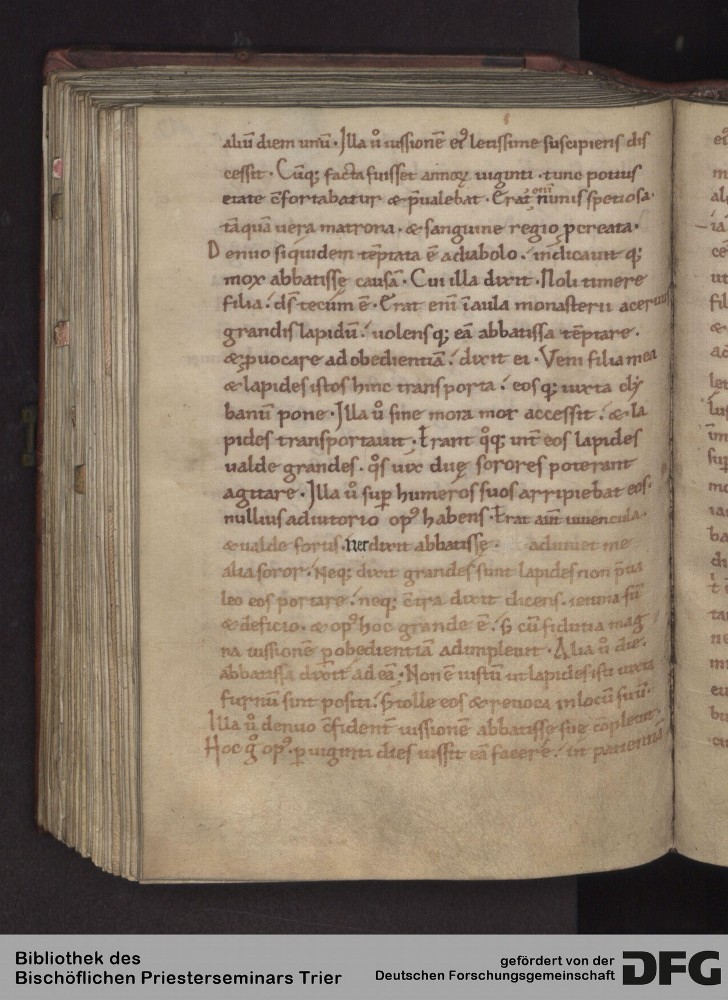 aliū diem unū · Illa ů iussionē ei᷒ letissime suscipiens dis
cessit · Cūq; facta fuisset annoꝝ uiginti · tunc potius
etate c̄fortabatur & p̄ualebat · Erat eni nimis spetiosa ·
tāquā uera matrona · & sanguine regio pcreata ·
Denuo siquidem tēptata ē a diabolo · indicauit q;
mox abbatisse causā · Cui illa dixit · Noli timere
filia · ds̄ tecum ē · Erat eni ī aula monasterii aceruus
grandis lapidū · uolensq; eā abbatissa tēptare ·
& ꝓuocare ad obedientiā · dixit ei · Veni filia mea
& lapides istos hinc transporta · eosq; iuxta cly
banū pone · Illa ů sine mora mox accessit · & la
pides transportauit · Erant q̊q; int̄ eos lapides
ualde grandes · q̊s uix duę sorores poterant
agitare · Illa ů sup humeros suos arripiebat eos ·
nullius adiutorio op᷒ habens · Erat aut̄ iuuencula ·
& ualde fortis · Nec dixit abbatisse · adiuuet me
alia soror · Neq; dixit grandes sunt lapides non p̄ua
leo eos portare · neq; c̄tra dixit dicens · ieiuna sū
& deficio · & op᷒ hoc grande ē · S; cū fidutia mag
na iussionē p obedientiā adimpleuit · Alia ů die ·
abbatissa dixit ad eā · Non ē iustū ut lapides isti iuxta
furnū sint positi · S; tolle eos & reuoca in locū suū ·
Illa ů denuo c̄fident̄ iussionē abbatisse sue cōpleuit ·
Hoc g̊ op᷒ · p uiginti dies iussit eā facere · ut patientiā
Bibliothek des
Bischöflichen Priesterseminars Trier
gefördert von der
Deutschen Forschungsgemeinschaft
DFG